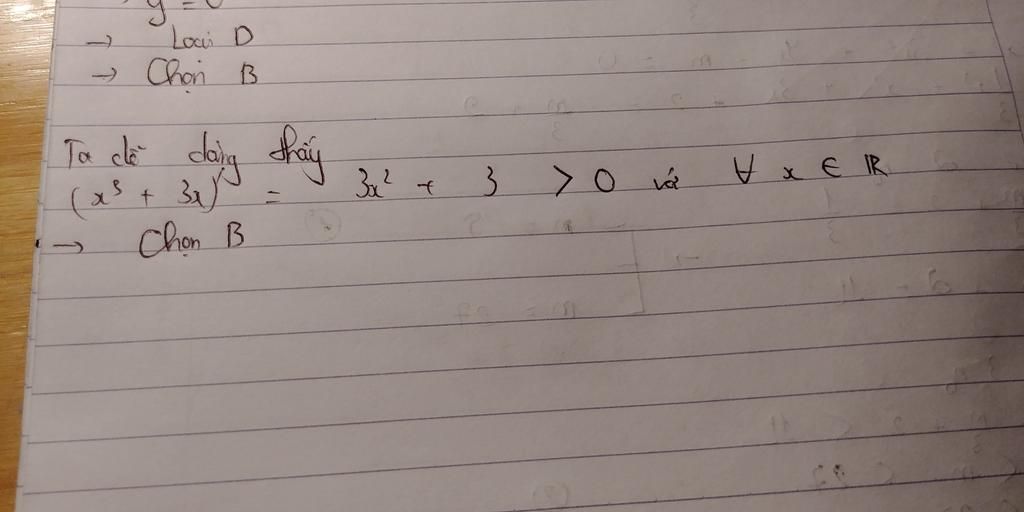 y = 0
→ Loại D
→ Chọn B
Ta dễ dàng thấy
(x³ + 3x)' = 3x² + 3 > 0 với ∀ x ∈ ℝ
→ Chọn B